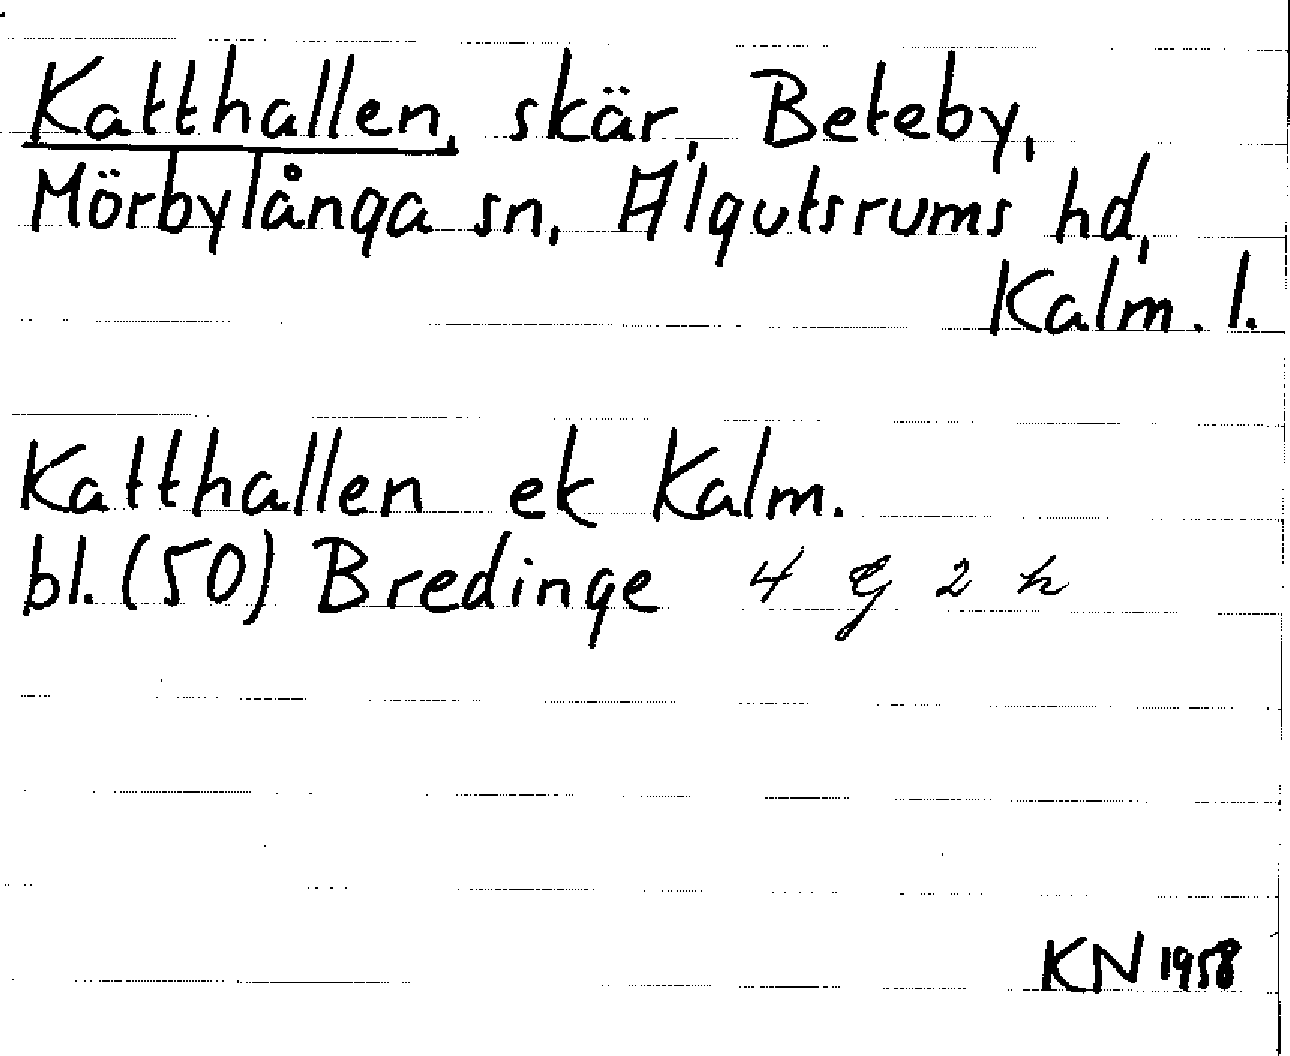 Katthallen, skär, Beteby,
Mörbylånga sn, Algutsrums hd,
Kalm. l.
Katthallen ek Kalm.
bl. (50) Bredinge 4 G 2 h
KN 1958